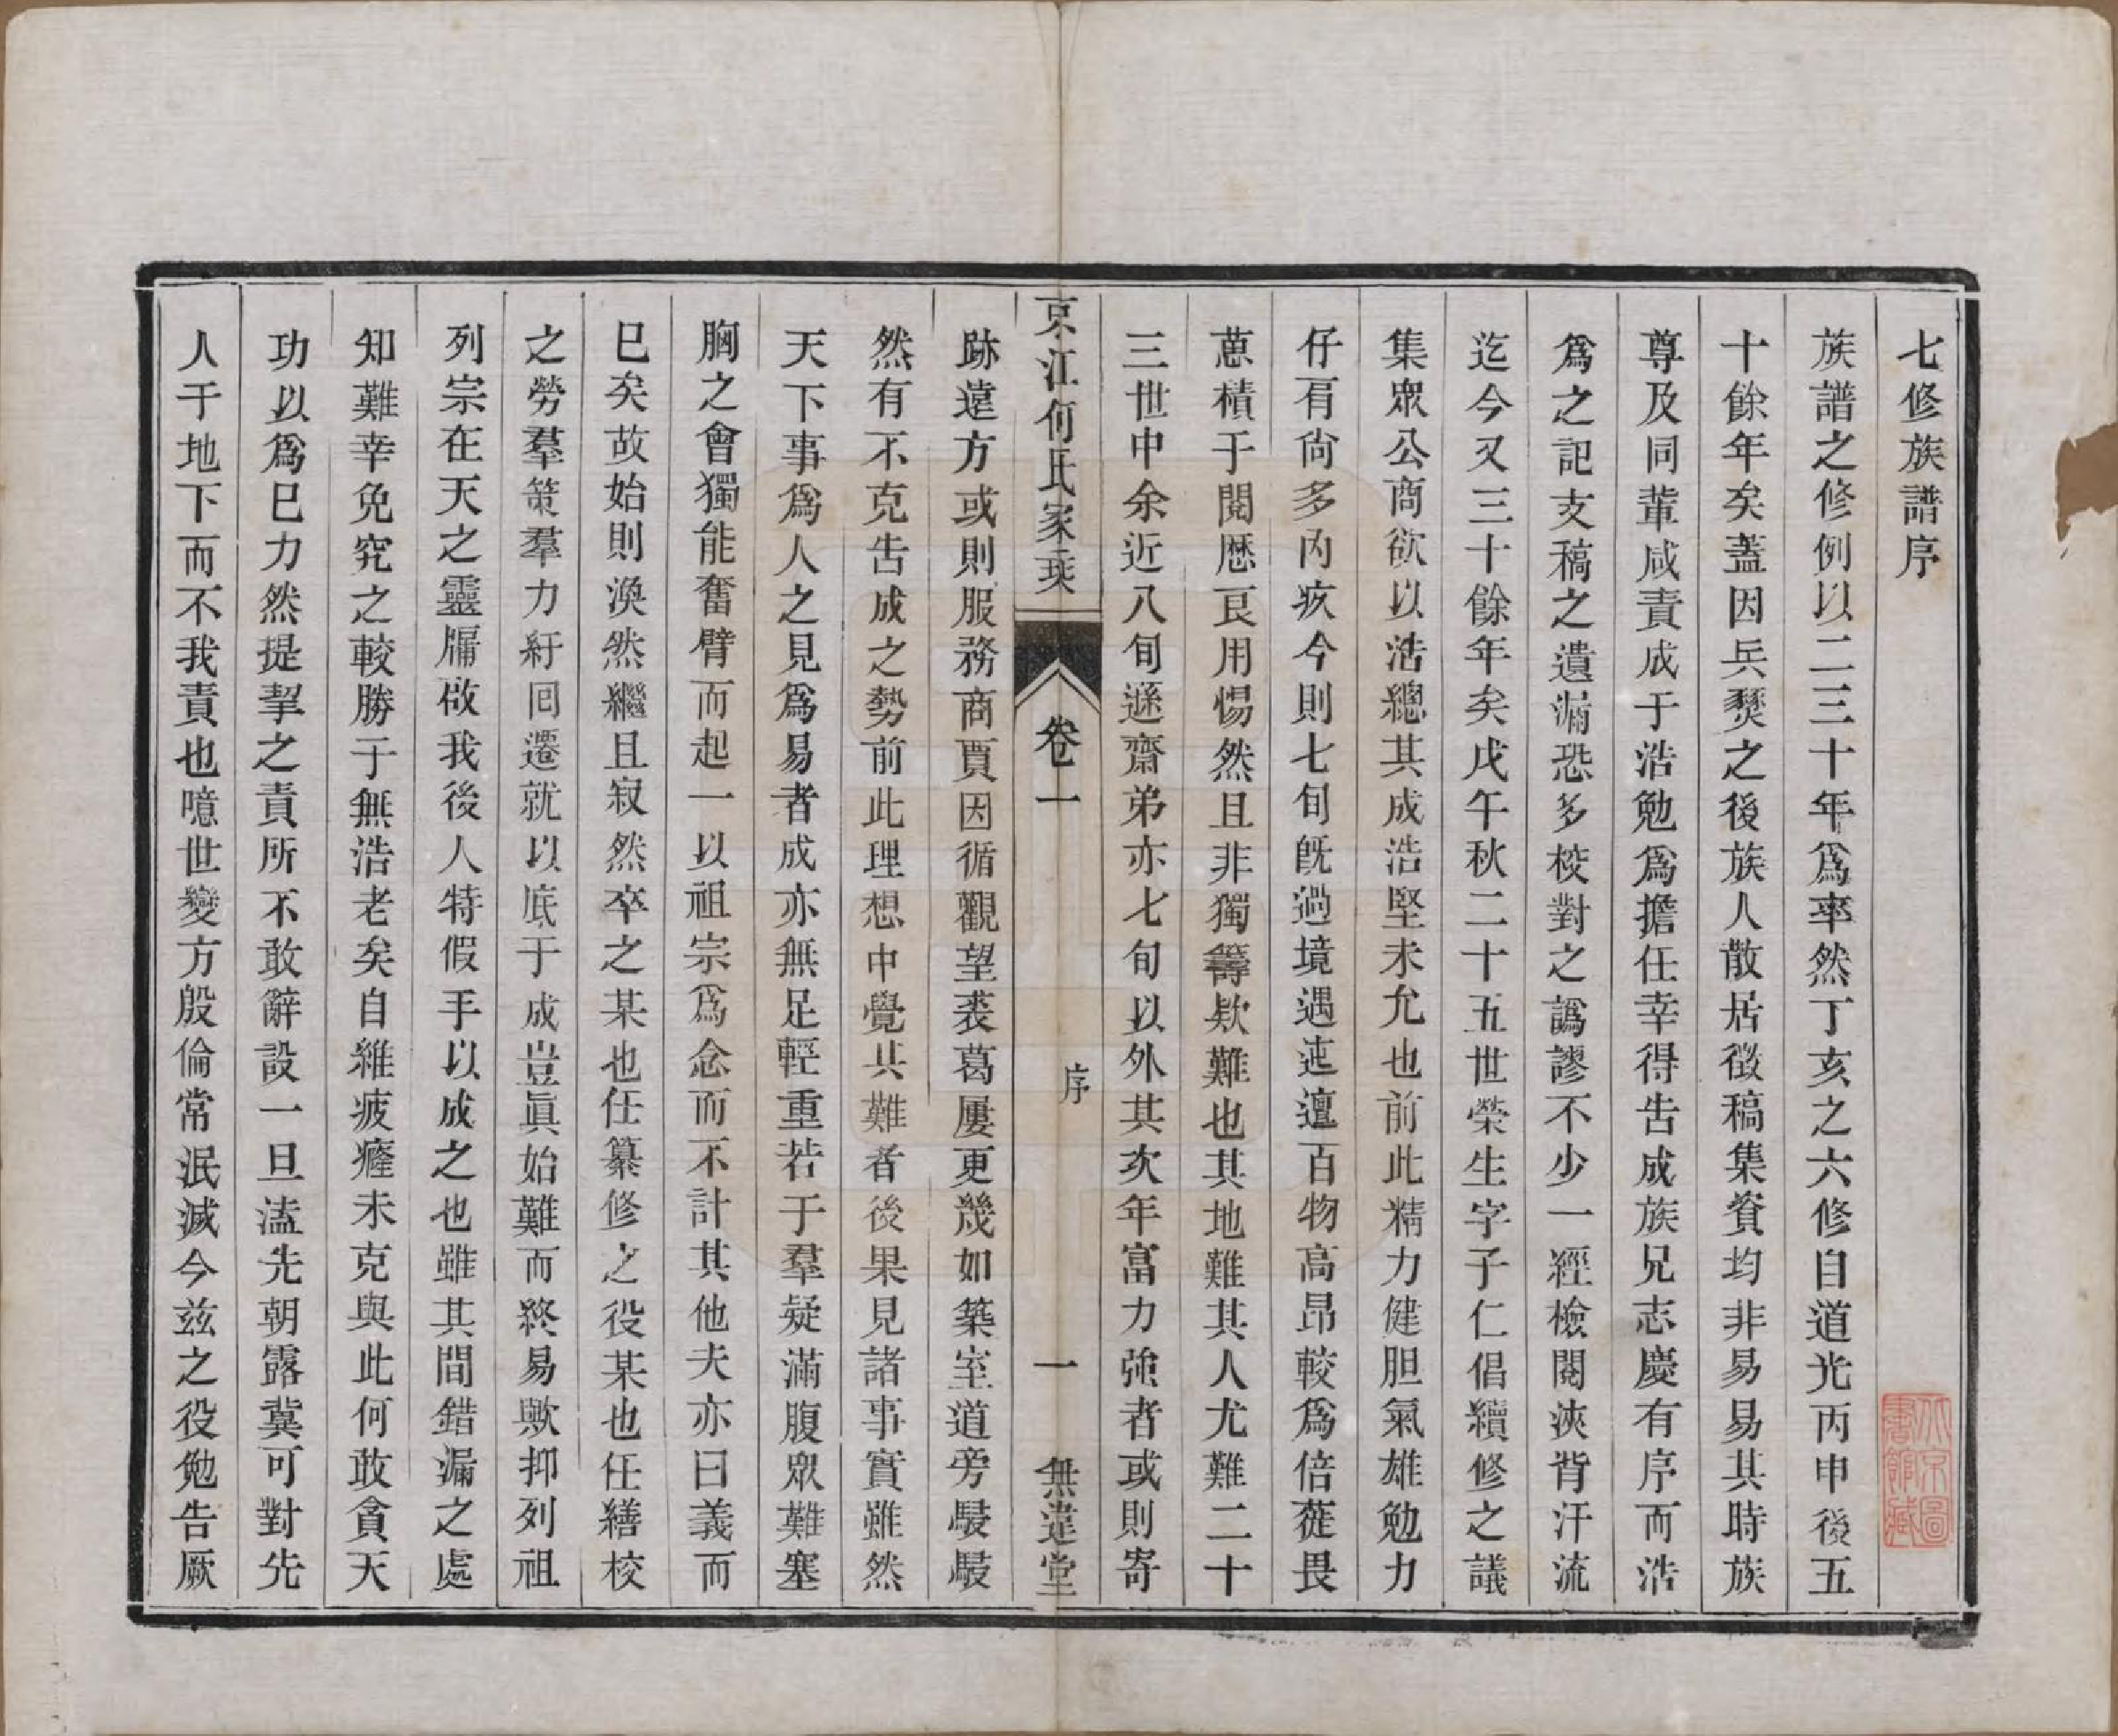 七修族譜序
族譜之修例以二三十年爲率然丁亥之六修自道光丙申後五
十餘年矣蓋因兵燹之後族人散居徵稿集貲均非易易其時族
尊及同輩咸責成于浩勉爲擔任幸得告成族兄志慶有序而浩
爲之記支稿之遺漏恐多校對之譌謬不少一經檢閱浹背汗流
迄今又三十餘年矣戊午秋二十五世榮生字子仁倡續修之議
集眾公商欲以浩總其成浩堅未允也前此精力健胆氣雄勉力
仔肩尙多內疚今則七旬旣過境遇迍邅百物高昂較爲倍蓰畏
葸積于閱歷良用惕然且非獨籌欵難也其地難其人尤難二十
三世中余近八旬遜齋弟亦七旬以外其次年富力強者或則寄
京江何氏家乘 卷一 序 一 無違堂
跡遠方或則服務商賈因循觀望裘葛屢更幾如築室道旁駸駸
然有不克告成之勢前此理想中覺其難者後果見諸事實雖然
天下事爲人之見爲易者成亦無足輕重若于羣疑滿腹眾難塞
胸之會獨能奮臂而起一以祖宗爲念而不計其他夫亦曰義而
已矣故始則渙然繼且寂然卒之某也任纂修之役某也任繕校
之勞羣策羣力紆回遷就以底于成豈眞始難而終易歟抑列祖
列宗在天之靈牖啟我後人特假手以成之也雖其間錯漏之處
知難幸免究之較勝于無浩老矣自維疲癃未克與此何敢貪天
功以爲已力然提挈之責所不敢辭設一旦溘先朝露冀可對先
人于地下而不我責也噫世變方殷倫常泯滅今兹之役勉告厥